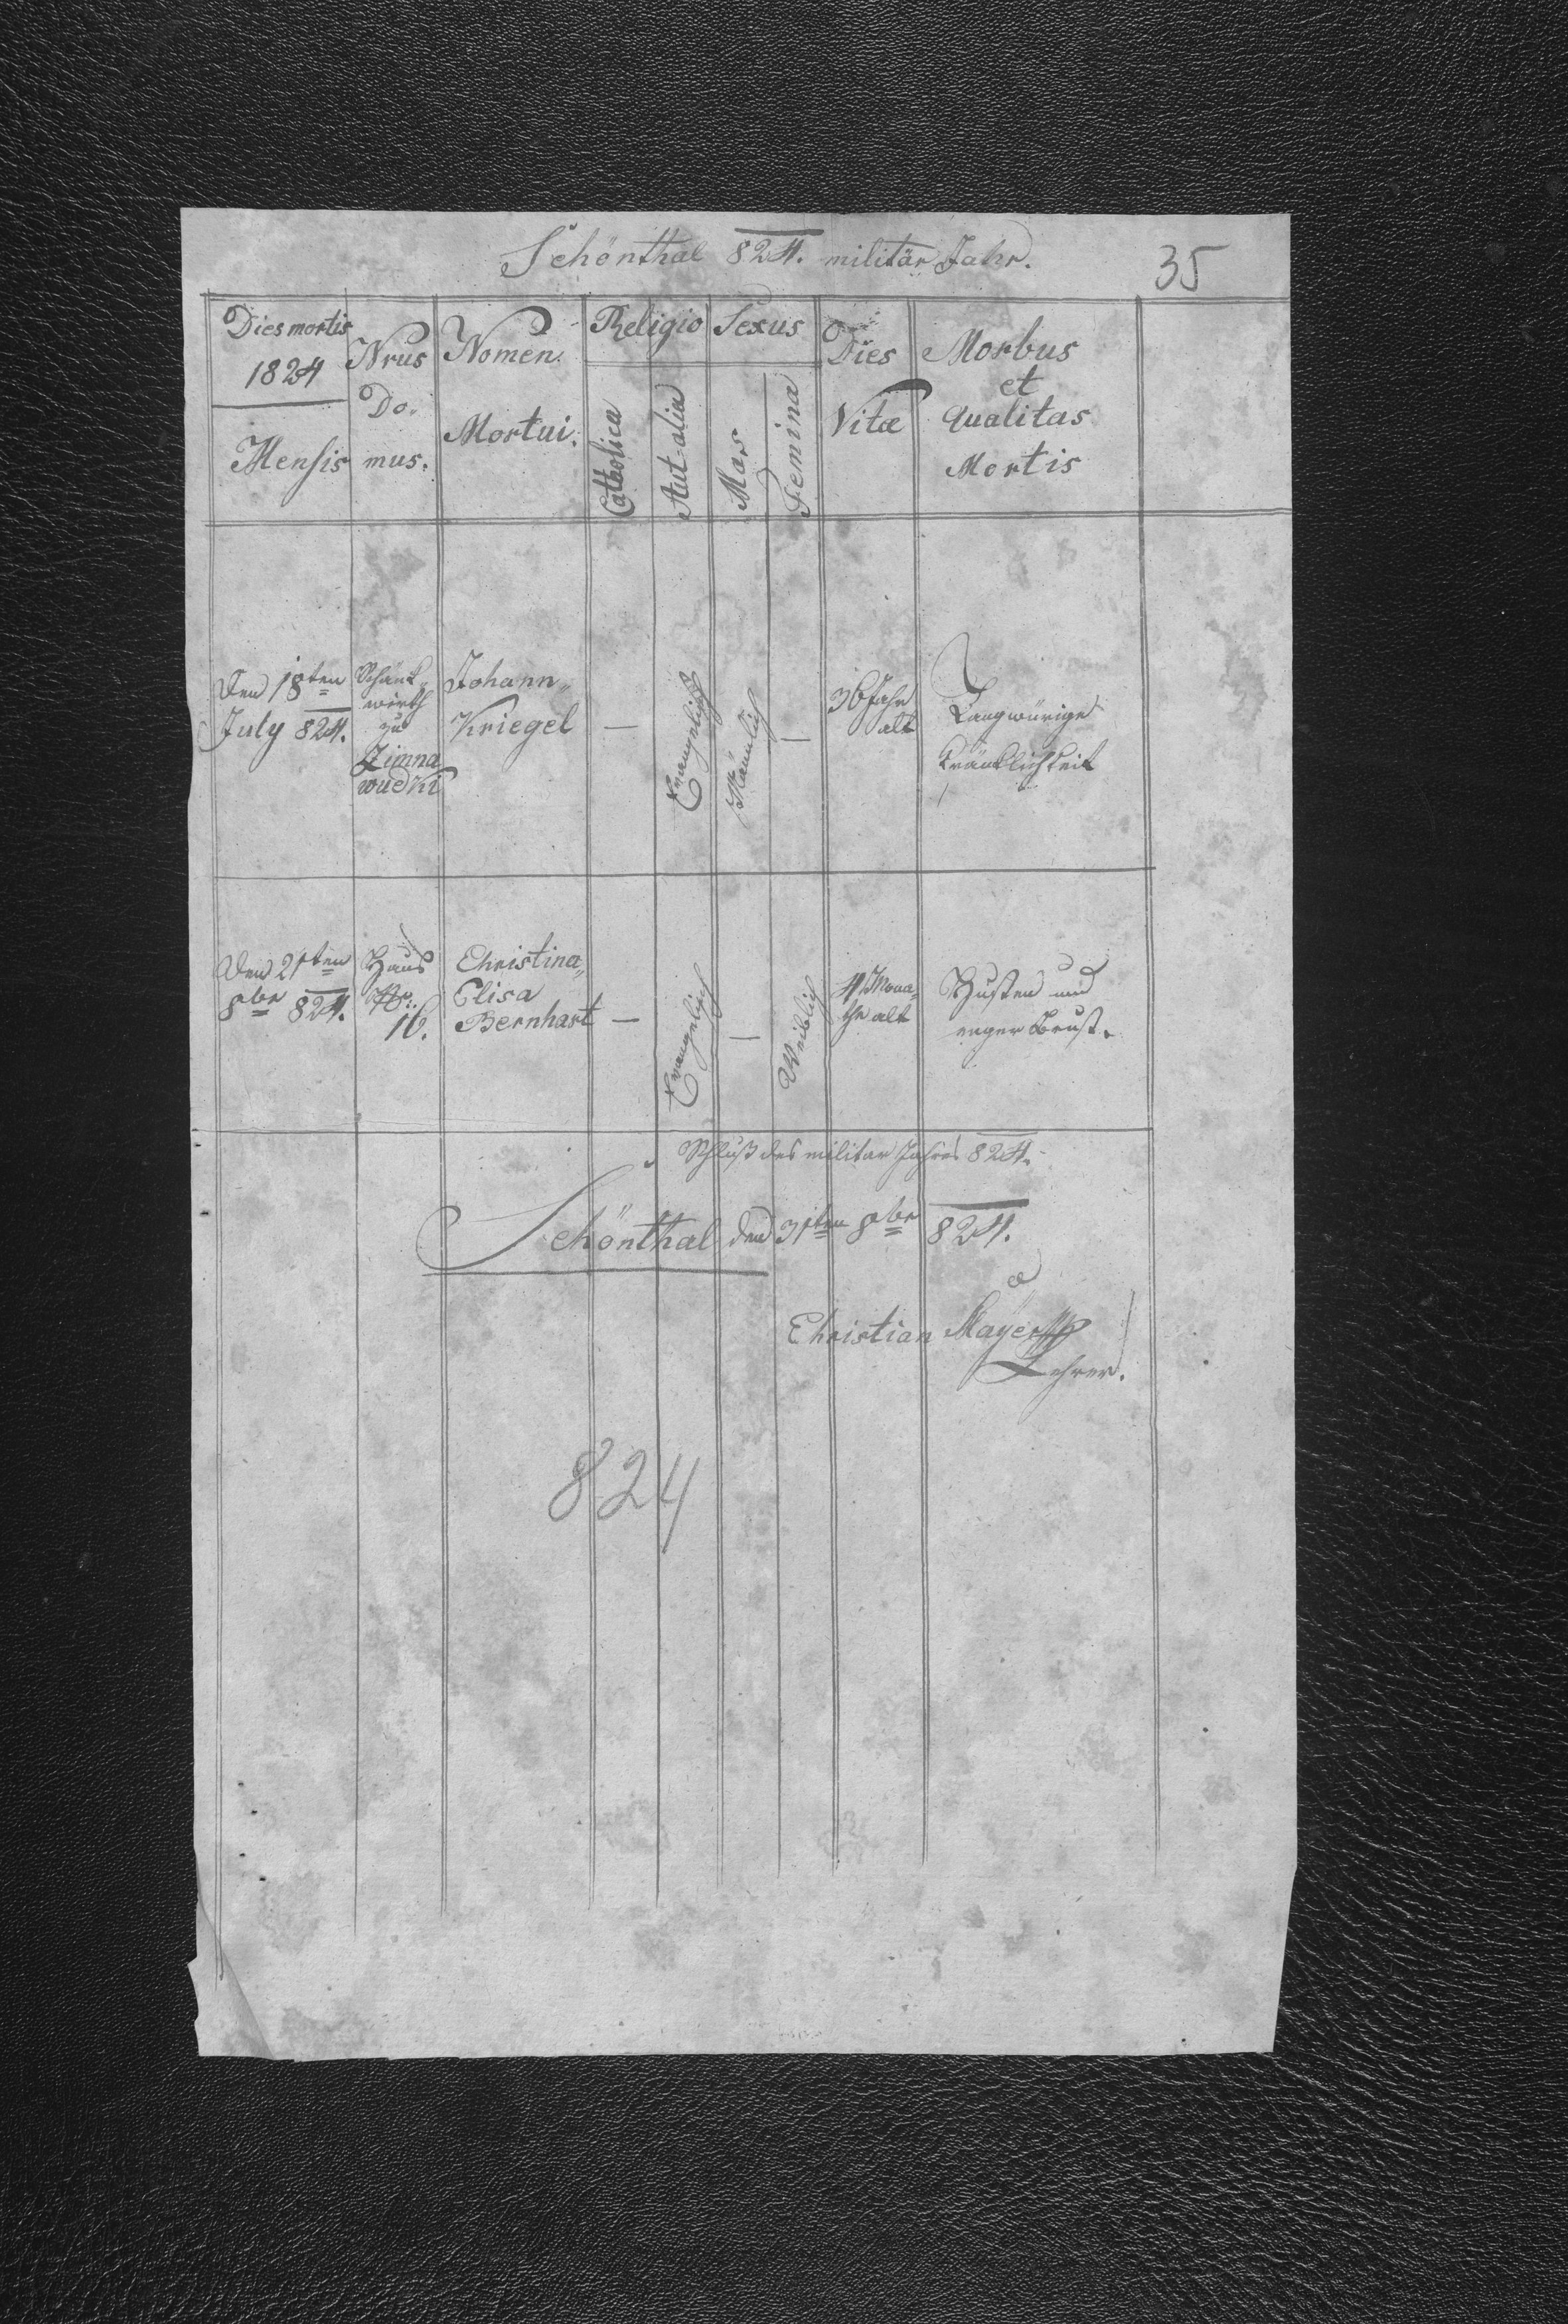 Schönthal 824. militär Jahr.
35
Dies mortis
1824
Mensis
Nrus
Do-
mus.
Nomen
Mortui.
Religio
Catholica
Aut-alia
Sexus
Mas
Femina
Dies
Vitæ
Morbus
et
qualitas
Mortis
Den 18ten
July 824.
Schänk-
wirth
zu
Zimna
wudki
Johann
Kriegel
—
Evangelisch
Mänlich
—
36 Jahr
alt
Langwürige
Kränklichkeit
Den 21ten
8br 824.
Haus
Nr.
16.
Christina
Elisa
Bernhart
—
Evangelisch
—
Weiblich
4 Mona-
the alt
Husten und
enger Brust.
Schluß des militar Jahres 824.
Schönthal den 31ten 8br 824.
Christian Mayer
Lehrer.
824